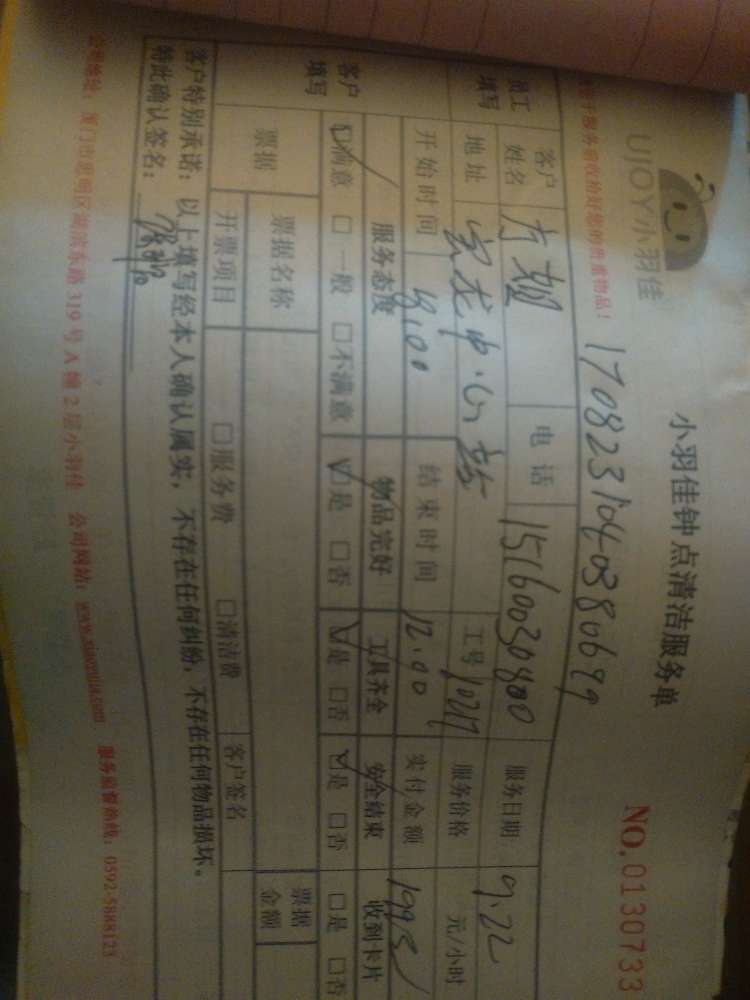 UJOY小羽佳
小羽佳钟点清洁服务单
NO.0130733
1708231040380699
员工填写 客户姓名 电话 15160030800 服务日期 9.22
地址 宝龙中心 工号 服务价格 元/小时
开始时间 结束时间 12.00 实付金额
客户填写 服务态度 物品完好 工具齐全 安全结束 收到卡片
□满意 □一般 □不满意 □是 □否 □是 □否 □是 □否 □是 □否
票据 票据名称 票据金额
开票项目 □服务费 □清洁费 客户签名
客户特别承诺：以上填写经本人确认属实，不存在任何纠纷，不存在任何物品损坏。
特此确认签名：
厦门市思明区湖滨东路319号A幢2层小羽佳 公司网站：www.xiaoyujia.com 服务监督热线：0592-5888123